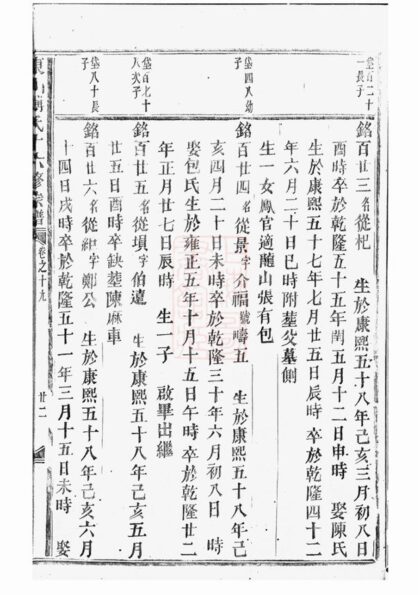 瑩百二十
一長子
銘百廿三名從杞 生於康熙五十八年己亥三月初八日
酉時卒於乾隆五十五年閏五月十二日申時 娶陳氏
生於康熙五十七年七月廿五日辰時 卒於乾隆四十二
年六月二十日巳時附塟父墓側
生一女鳳官適隨山張有包
瑩四八幼
子
銘百廿四名從景字介福號疇五 生於康熙五十八年己
亥四月二十日未時卒於乾隆三十年六月初八日 時
娶包氏生於雍正五年十月十五日午時卒於乾隆廿二
年正月廿七日辰時 生一子 啟畢出繼
瑩百七十
八次子
銘百廿五名從塤字伯遽 生於康熙五十八年己亥五月
廿五日酉時卒缺塟陳麻車
瑩八十長
子
銘百廿六名從 字鄭公 生於康熙五十八年己亥六月
十四日戌時卒於乾隆五十一年三月十五日未時 娶
東 氏十六修宗譜 卷之十九 廿二